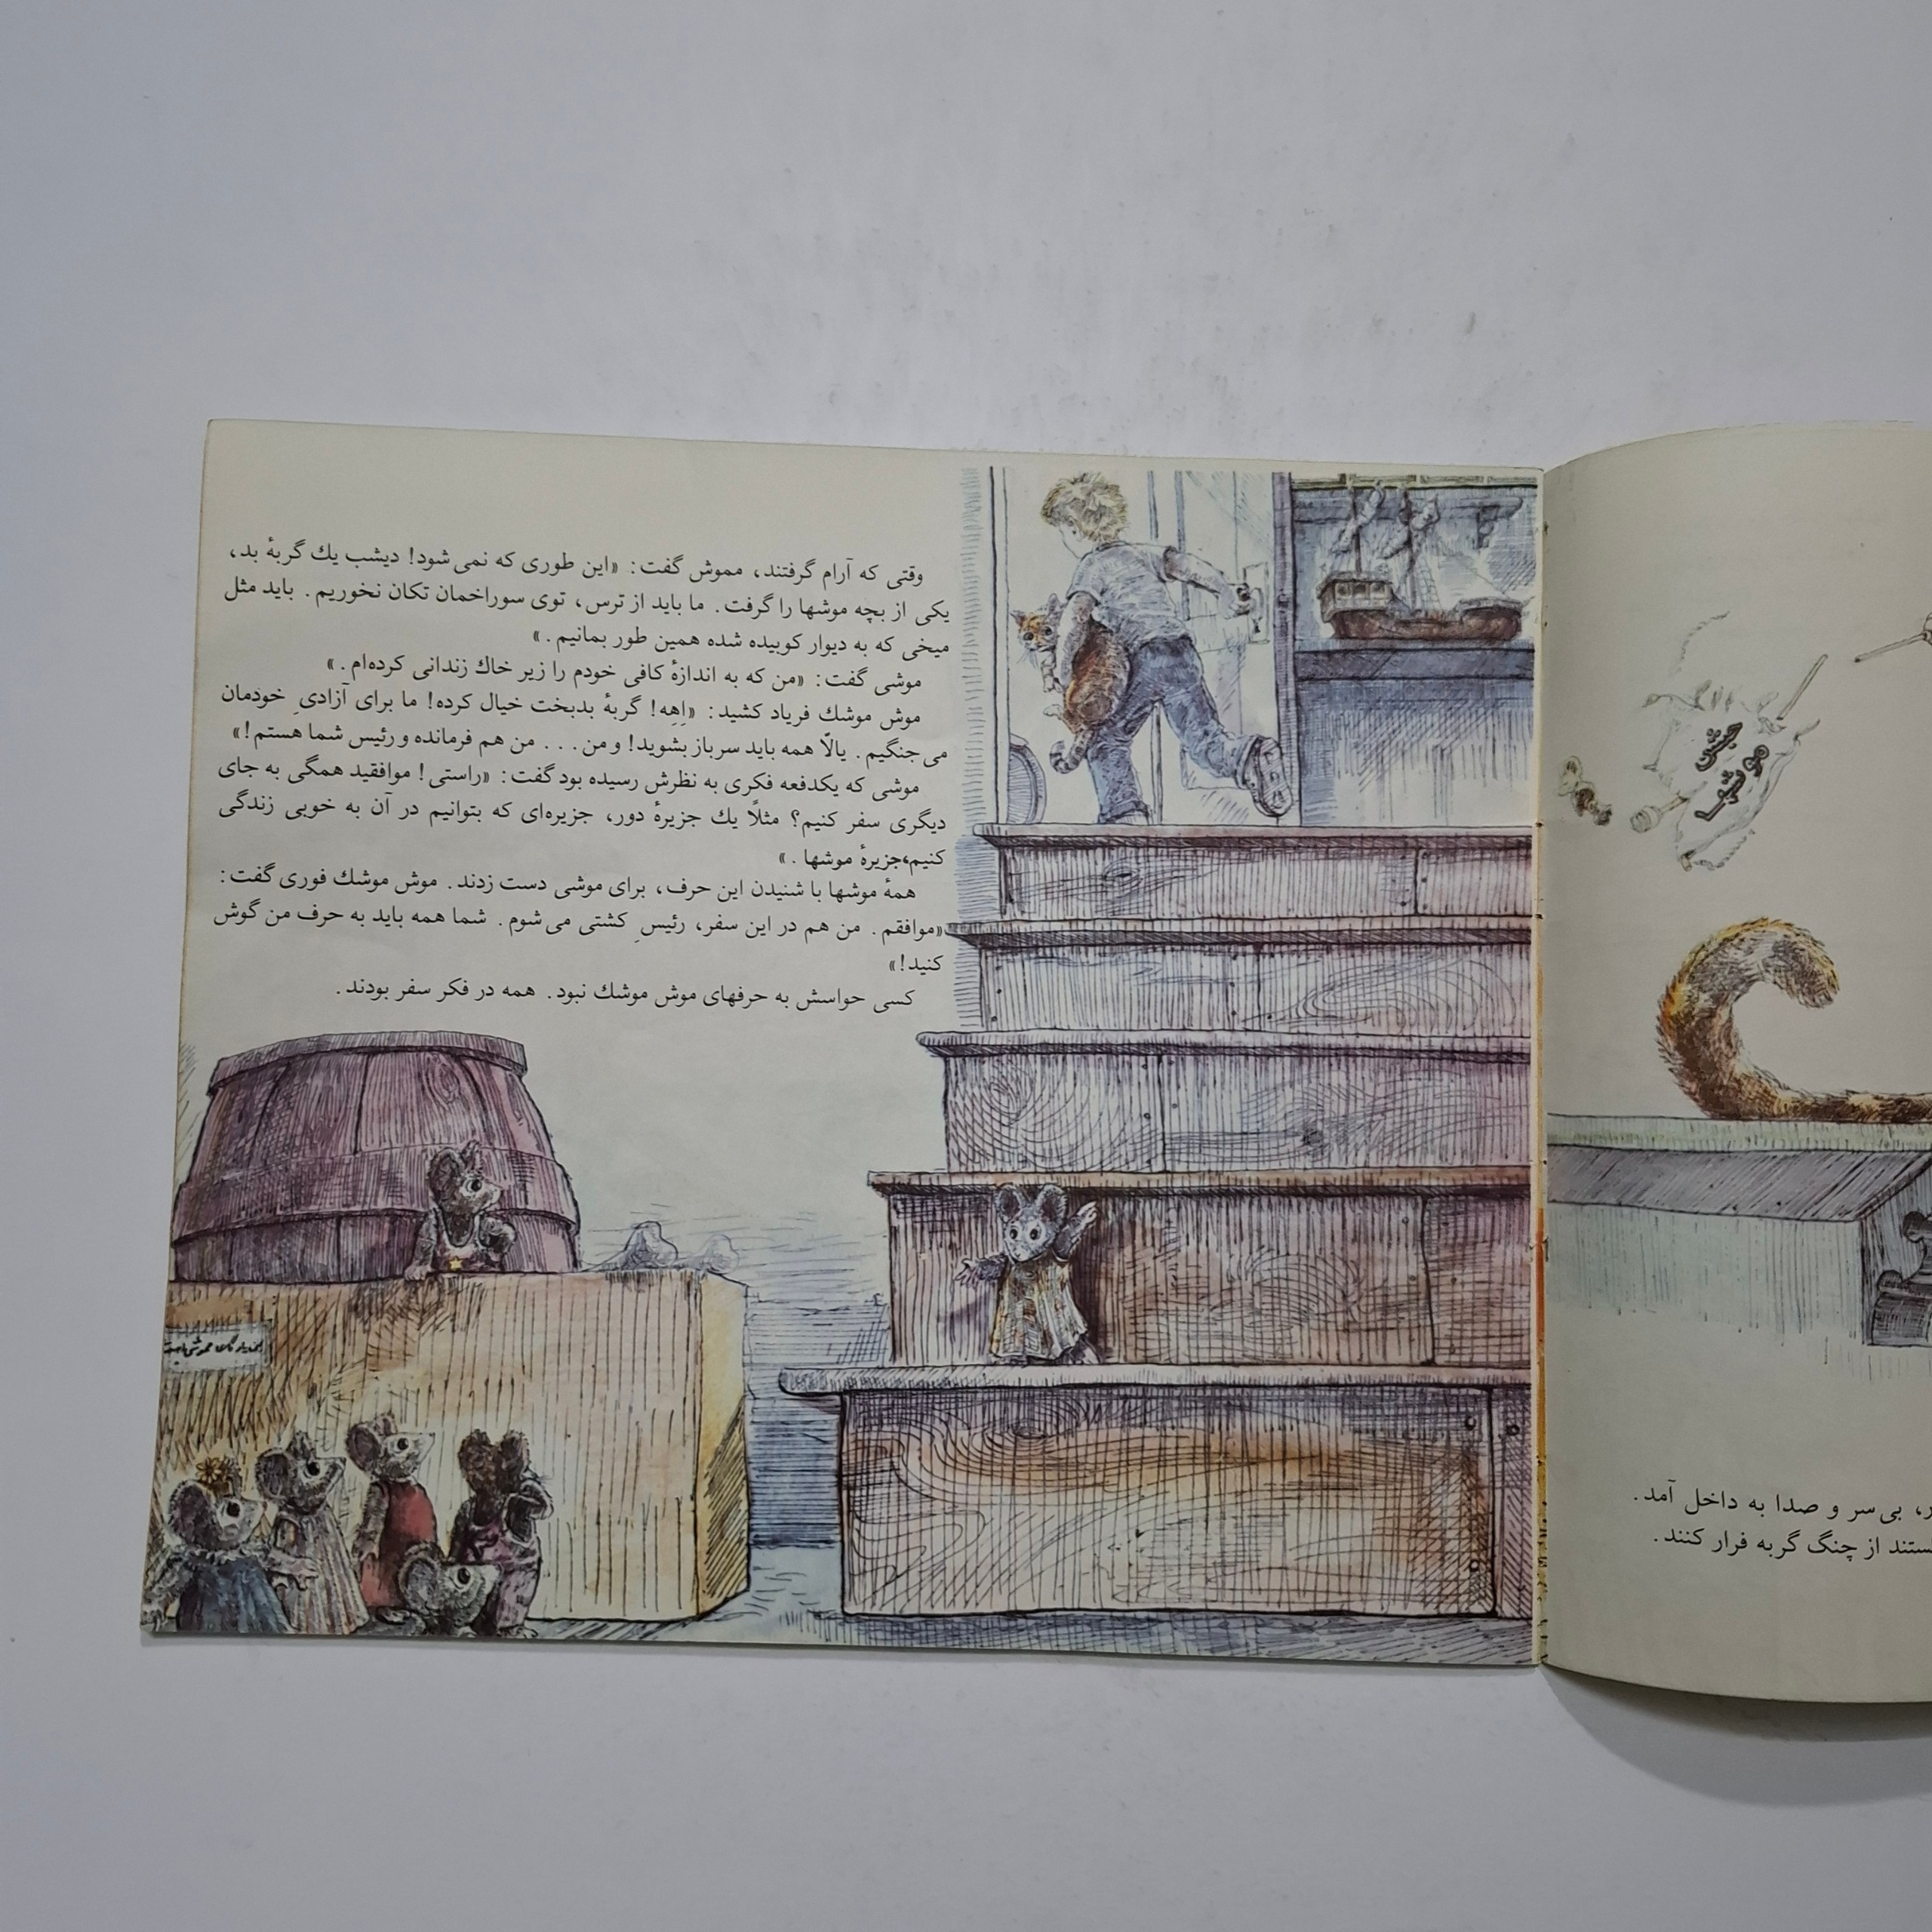 وقتی که آرام گرفتند، مموش گفت: «این طوری که نمی‌شود! دیشب یك گربهٔ بد،
یکی از بچه موشها را گرفت. ما باید از ترس، توی سوراخمان تکان نخوریم. باید مثل
میخی که به دیوار کوبیده شده همین طور بمانیم.»
موشی گفت: «من که به اندازهٔ کافی خودم را زیر خاك زندانی کرده‌ام.»
موش موشك فریاد کشید: «اِهِه! گربهٔ بدبخت خیال کرده! ما برای آزادیِ خودمان
می‌جنگیم. یالّا همه باید سرباز بشوید! و من... من هم فرمانده و رئیس شما هستم!»
موشی که یکدفعه فکری به نظرش رسیده بود گفت: «راستی! موافقید همگی به جای
دیگری سفر کنیم؟ مثلاً یك جزیرهٔ دور، جزیره‌ای که بتوانیم در آن به خوبی زندگی
کنیم،جزیرهٔ موشها.»
همهٔ موشها با شنیدن این حرف، برای موشی دست زدند. موش موشك فوری گفت:
«موافقم. من هم در این سفر، رئیسِ کشتی می‌شوم. شما همه باید به حرف من گوش
کنید!»
کسی حواسش به حرفهای موش موشك نبود. همه در فکر سفر بودند.
جشن
موشها
بی‌سر و صدا به داخل آمد.
از چنگ گربه فرار کنند.